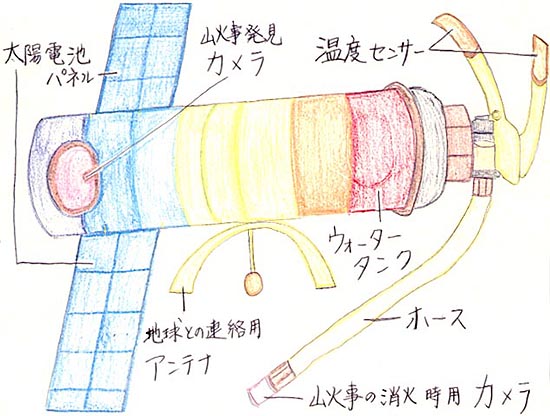 太陽電池
パネル
山火事発見
カメラ
温度センサー
ウォーター
タンク
地球との連絡用
アンテナ
ホース
山火事の消火時用 カメラ